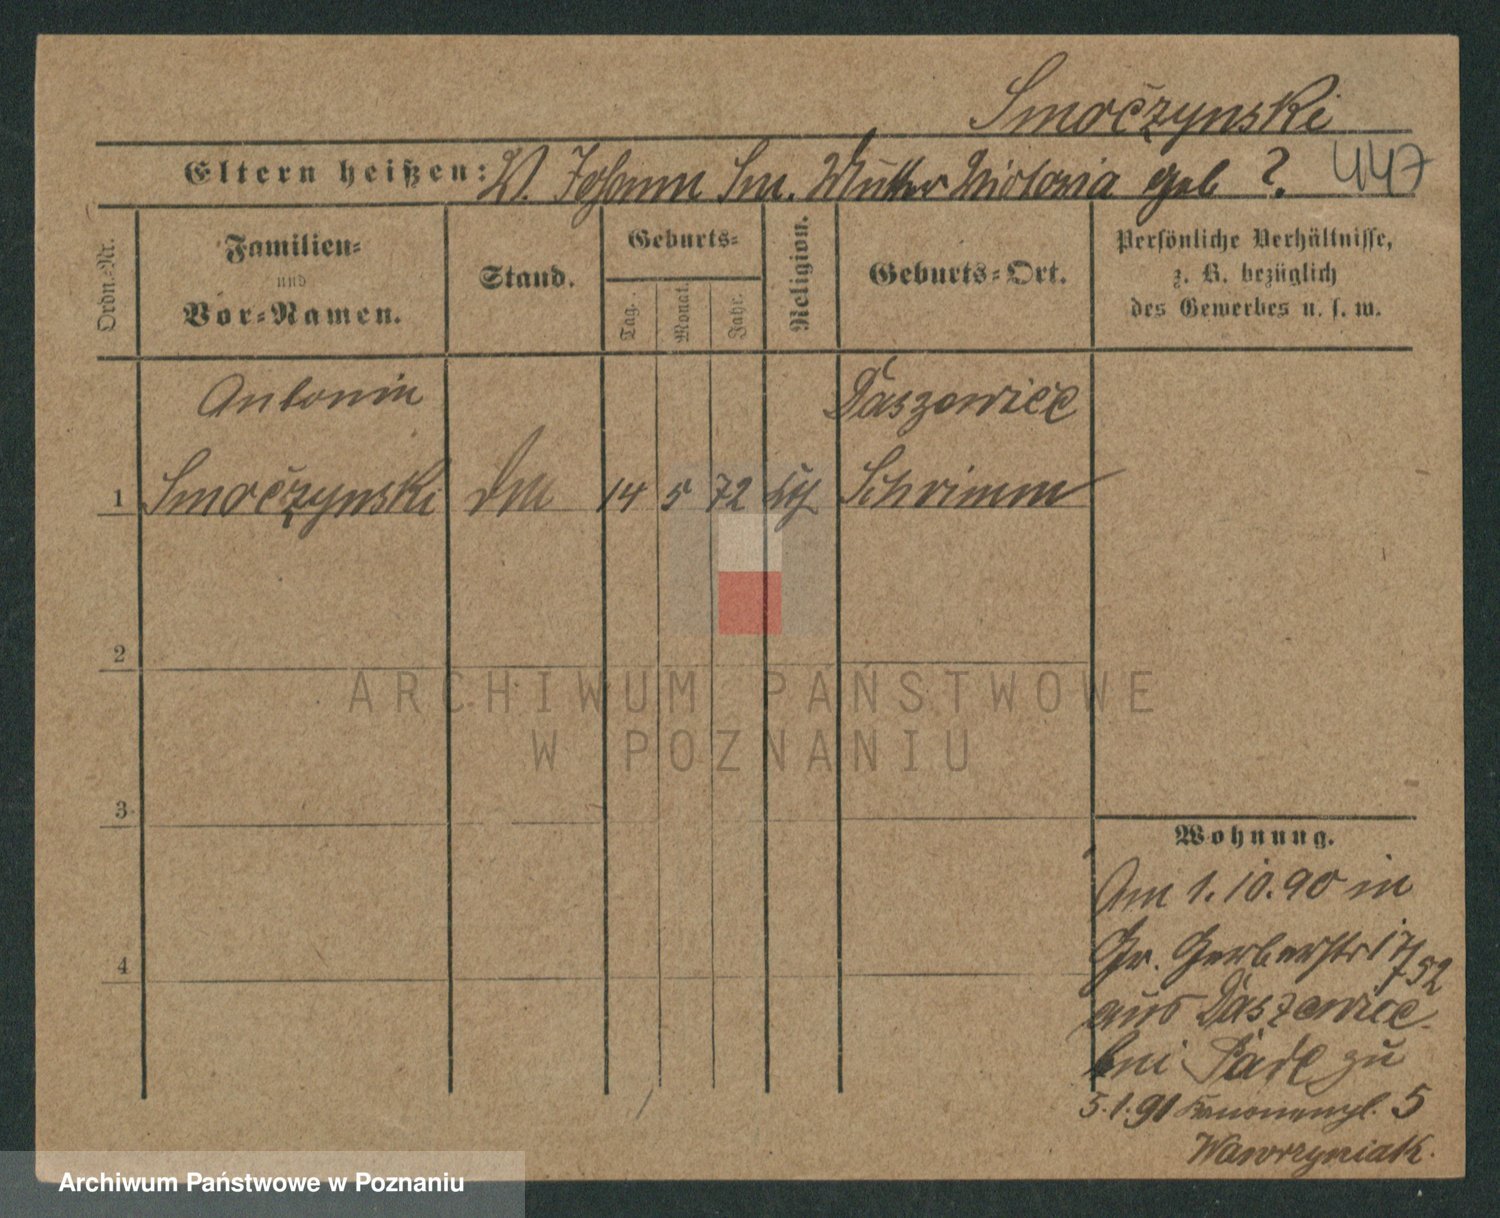 Smoczynski
Eltern heißen: V. Johann Sm. Mutter Victoria geb ?. 447
Ordn.-Nr.
Familien-
und
Vor-Namen.
Stand.
Geburts-
Tag.
Monat.
Jahr.
Religion.
Geburts-Ort.
Persönliche Verhältnisse,
z. B. bezüglich
des Gewerbes u. s. w.
Antonin Daszewice
1 Smoczynski 14 5 72 Schrimm
2
3
4
Wohnung.
Am 1.10.90 in
Gr. Gerberstr 17/52
aus Daszewice
bei zu
5.1.91 Kanonenpl. 5
Wawrzyniak.
ARCHIWUM PAŃSTWOWE
W POZNANIU
Archiwum Państwowe w Poznaniu